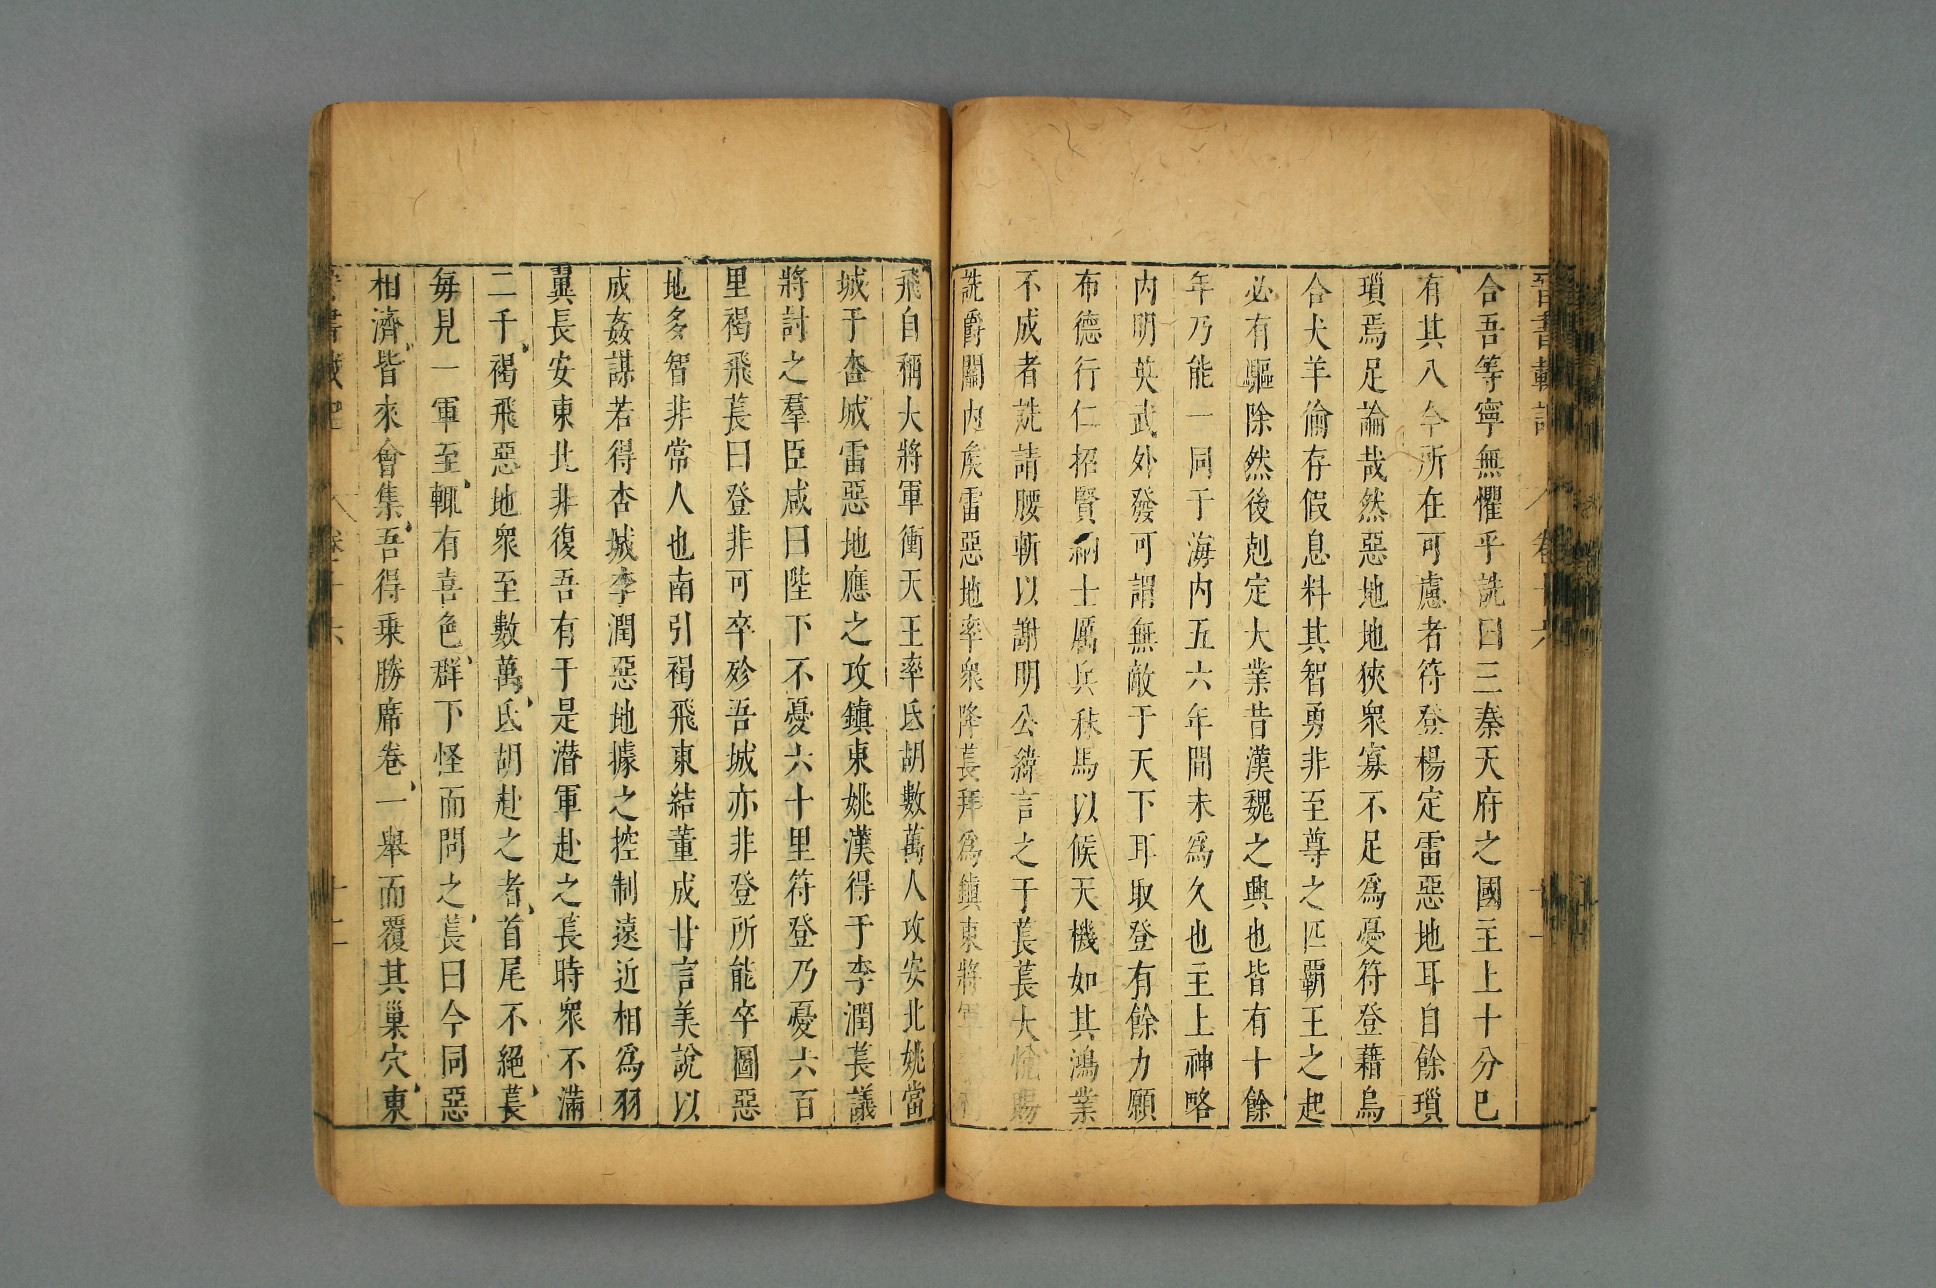 晉書載記 卷十六 十一
合吾等寧無懼乎詵曰三秦天府之國主上十分已
有其八今所在可慮者符登楊定雷惡地耳自餘瑣
瑣焉足論哉然惡地地狹衆寡不足爲憂符登藉烏
合犬羊偷存假息料其智勇非至尊之匹霸王之起
必有驅除然後剋定大業昔漢魏之興也皆有十餘
年乃能一同于海内五六年間未爲久也主上神略
内明英武外發可謂無敵于天下耳取登有餘力願
布德行仁招賢納士厲兵秣馬以候天機如其鴻業
不成者詵請腰斬以謝明公緯言之于萇萇大悅賜
詵爵關内矦雷惡地率衆降萇拜爲鎮東將軍
飛自稱大將軍衝天王率氐胡數萬人攻安北姚當
城于杏城雷惡地應之攻鎮東姚漢得于李潤萇議
將討之羣臣咸曰陛下不憂六十里符登乃憂六百
里褐飛萇曰登非可卒殄吾城亦非登所能卒圖惡
地多智非常人也南引褐飛東結董成甘言美說以
成姦謀若得杏城李潤惡地據之控制遠近相爲羽
翼長安東北非復吾有于是潜軍赴之萇時衆不滿
二千褐飛惡地衆至數萬氐胡赴之者首尾不絕萇
每見一軍至輒有喜色群下怪而問之萇曰今同惡
相濟皆來會集吾得乗勝席卷一舉而覆其巢穴東
卷十六 十二